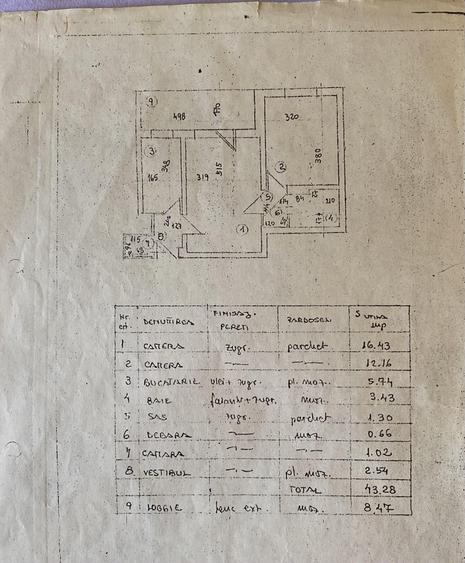 9
498
170
320
3
165
348
319
515
2
380
5
114
84
210
6
120
4
1
127
8
7
115
Nr. crt. DENUMIREA FINISAJ PERETI PARDOSELI S utila mp
1 CAMERA zugr. parchet 16.43
2 CAMERA —"— —"— 12.16
3 BUCATARIE ulei + zugr. pl. moz. 5.74
4 BAIE faianta + zugr. moz. 3.43
5 SAS zugr. parchet 1.30
6 DEBARA —"— moz. 0.66
7 CAMARA —"— —"— 1.02
8 VESTIBUL —"— pl. moz. 2.54
TOTAL 43.28
9 LOGGIE tenc. ext. moz. 8.47